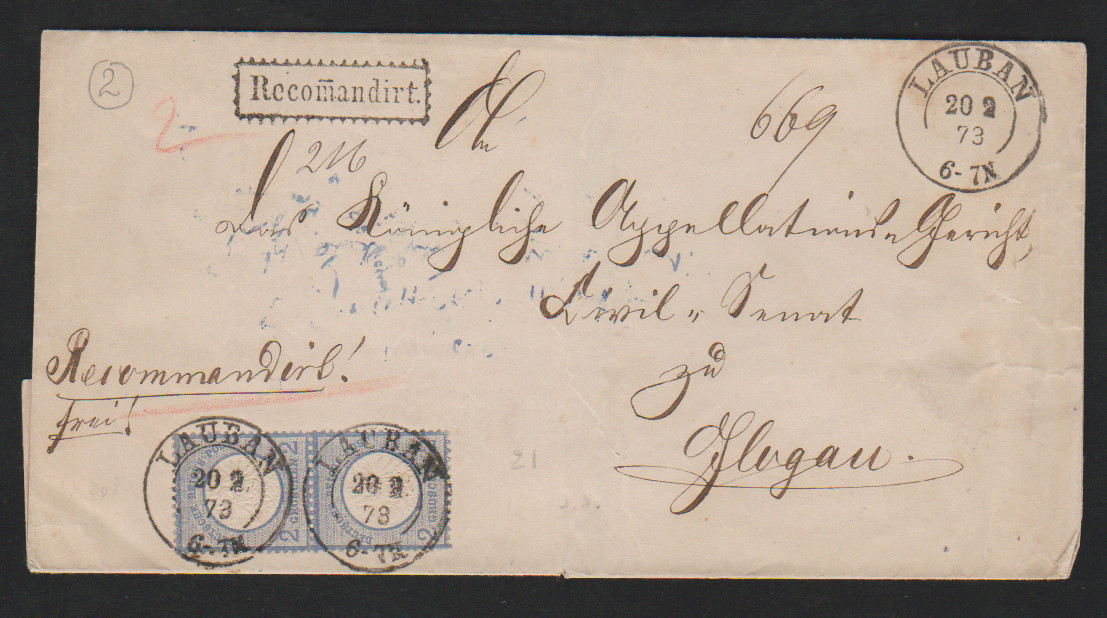 2
Recom̄andirt.
LAUBAN
20 2
73
6-7N
2
216
An
669
das Königliche Appellations-Gericht,
Civil-Senat
zu
Glogau.
Recommandirt!
frei!
LAUBAN
20 2
73
6-7N
LAUBAN
20 2
73
6-7N
2
2
2
21